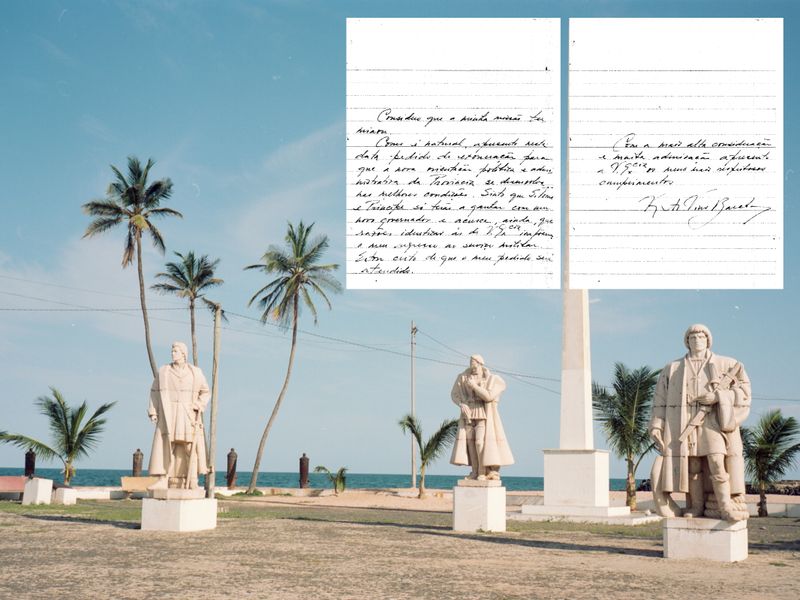 Considero que a minha missão ter
minou.
Como é natural, apresento nesta
data pedido de exoneração para
que a nova orientação política e admi
nistrativa da Província se desenvolva
nas melhores condições. Sinto que S. Tomé
e Príncipe só terão a ganhar com um
novo governador e acresce, ainda, que
razões idênticas às de V. Excia impõem
o meu regresso ao serviço militar.
Estou certo de que o meu pedido será
atendido.
Com a mais alta consideração
e muita admiração apresento
a V. Excia os meus mais respeitosos
cumprimentos